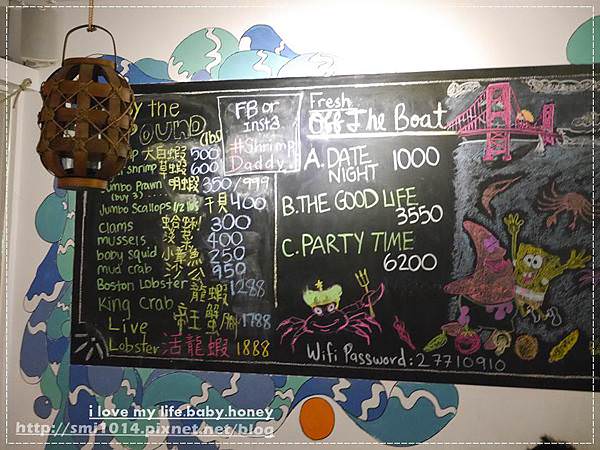 By the
Pound (lbs)
大白蝦 500
shrimp 草蝦 600
Jumbo Prawn 明蝦 350/999
(buy 3)
Jumbo Scallops 1/2 lbs 干貝 400
clams 蛤蜊 300
mussels 淡菜 400
baby squid 小卷 250
mud crab 沙公 950
Boston Lobster 龍蝦 1288
King Crab 帝王蟹腳 1788
Live
Lobster 活龍蝦 1888
FB or
Insta
#Shrimp
Daddy
Fresh
Off The Boat
A. DATE NIGHT 1000
B. THE GOOD LIFE
3550
C. PARTY TIME
6200
Wifi Password: 27710910
i love my life.baby.honey
http://smi1014.pixnet.net/blog